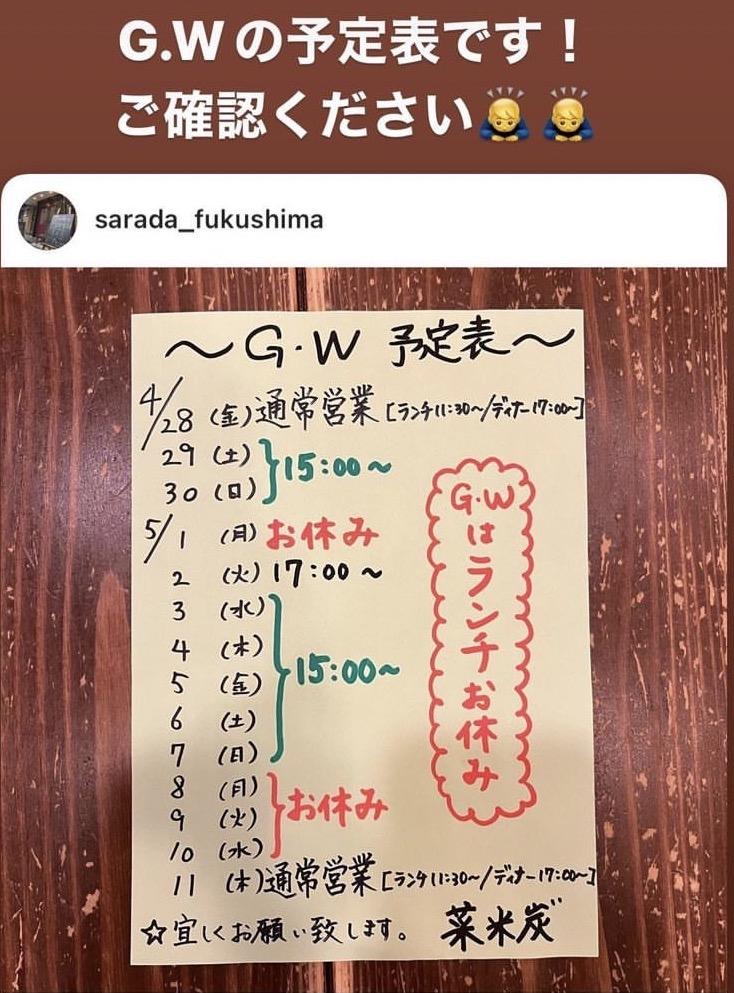 G.Wの予定表です！
ご確認ください🙇🙇
sarada_fukushima
～G・W 予定表～
4/28 (金)通常営業[ランチ11:30～/ディナー17:00～]
29 (土)
30 (日)
15:00～
5/1 (月)お休み
2 (火)17:00～
3 (水)
4 (木)
5 (金)
6 (土)
7 (日)
15:00～
8 (月)
9 (火)
10 (水)
お休み
11 (木)通常営業[ランチ11:30～/ディナー17:00～]
G・Wはランチお休み
☆宜しくお願い致します。 菜米炭゛